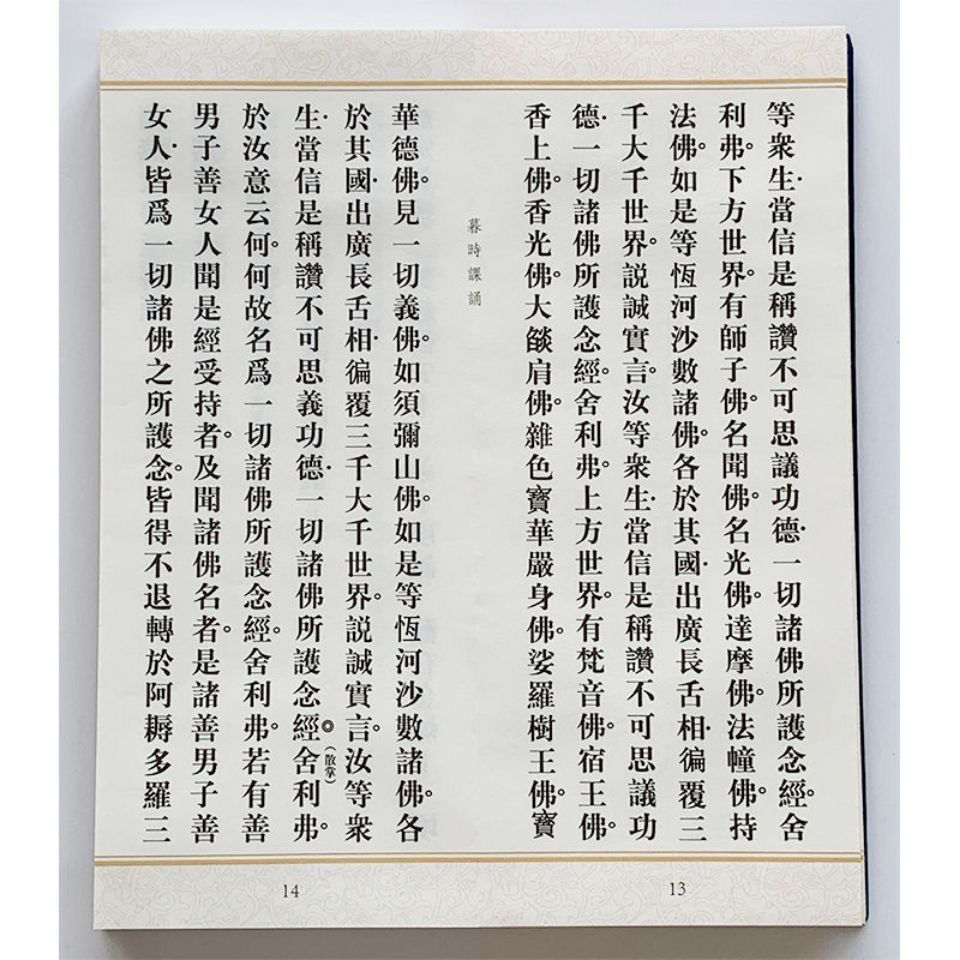 等衆生·當信是稱讚不可思議功德·一切諸佛所護念經。舍
利弗。下方世界。有師子佛。名聞佛。名光佛。達摩佛。法幢佛。持
法佛。如是等恆河沙數諸佛。各於其國·出廣長舌相·徧覆三
千大千世界。説誠實言。汝等衆生·當信是稱讚不可思議功
德·一切諸佛所護念經。舍利弗。上方世界。有梵音佛。宿王佛。
香上佛。香光佛。大燄肩佛。雜色寶華嚴身佛。娑羅樹王佛。寶
13
暮時課誦
華德佛。見一切義佛。如須彌山佛。如是等恆河沙數諸佛。各
於其國·出廣長舌相·徧覆三千大千世界。説誠實言。汝等衆
生·當信是稱讚不可思義功德·一切諸佛所護念經◎(散掌)舍利弗。
於汝意云何。何故名爲一切諸佛所護念經。舍利弗。若有善
男子善女人聞是經受持者。及聞諸佛名者。是諸善男子善
女人·皆爲一切諸佛之所護念。皆得不退轉於阿耨多羅三
14